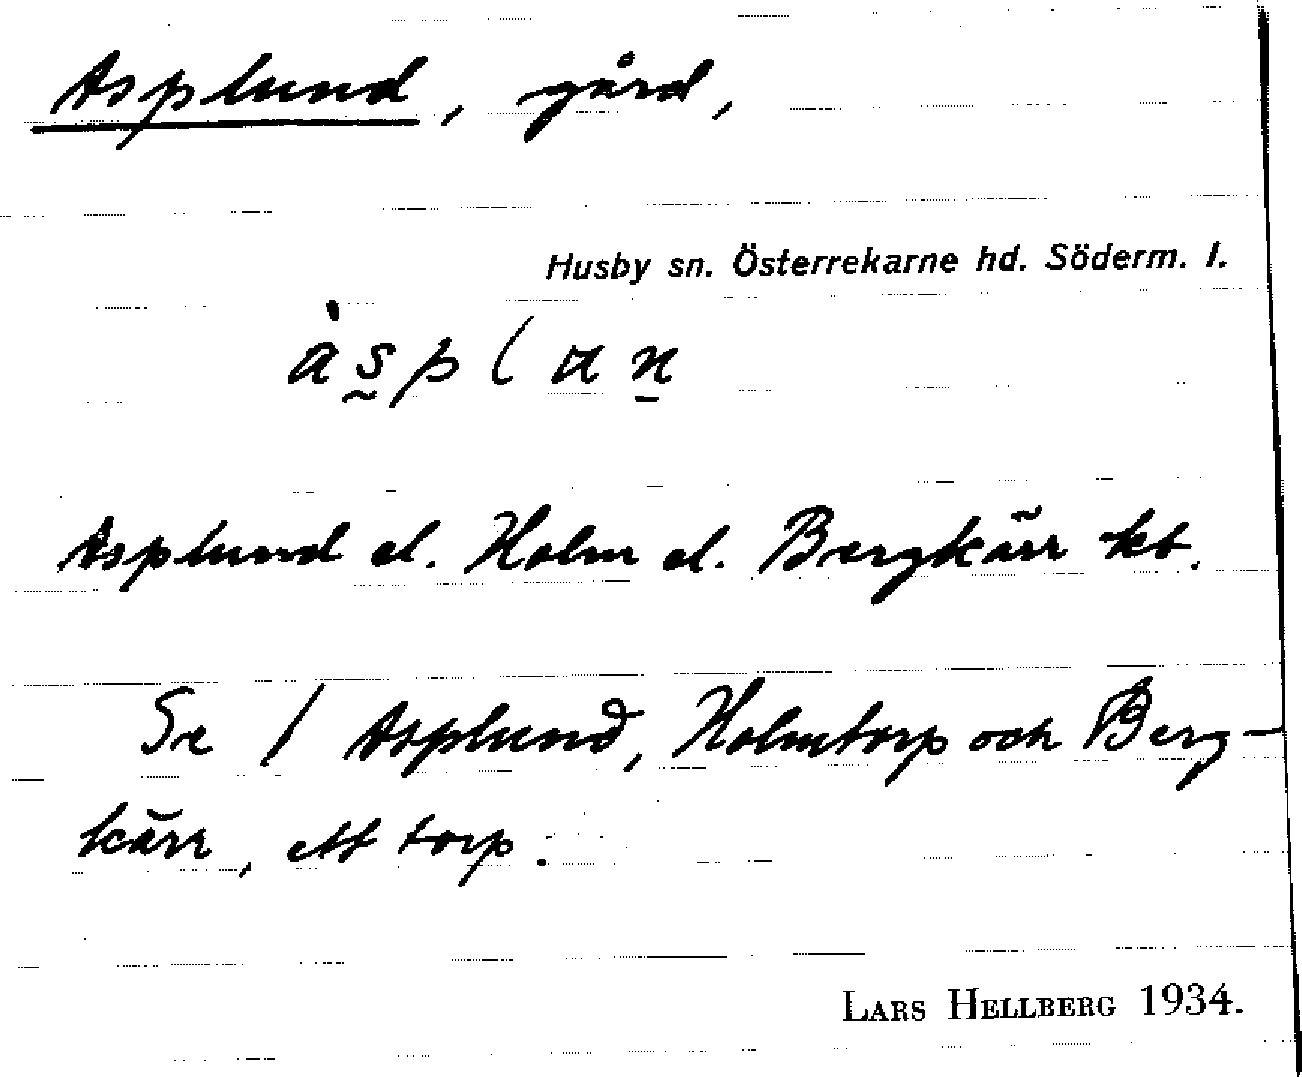 Asplund, gård,
Husby sn. Österrekarne hd. Söderm. l.
Asplund el. Holm el. Bergkärr kt.
Se / Asplund, Holmtorp och Berg-
kärr, ett torp.
LARS HELLBERG 1934.